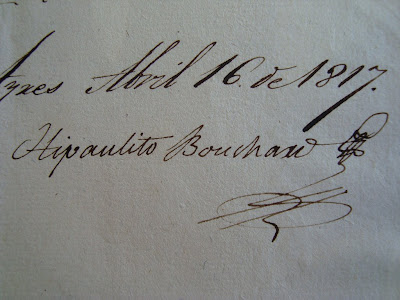 Ayres Abril 16. de 1817.
Hipaulito Bouchard